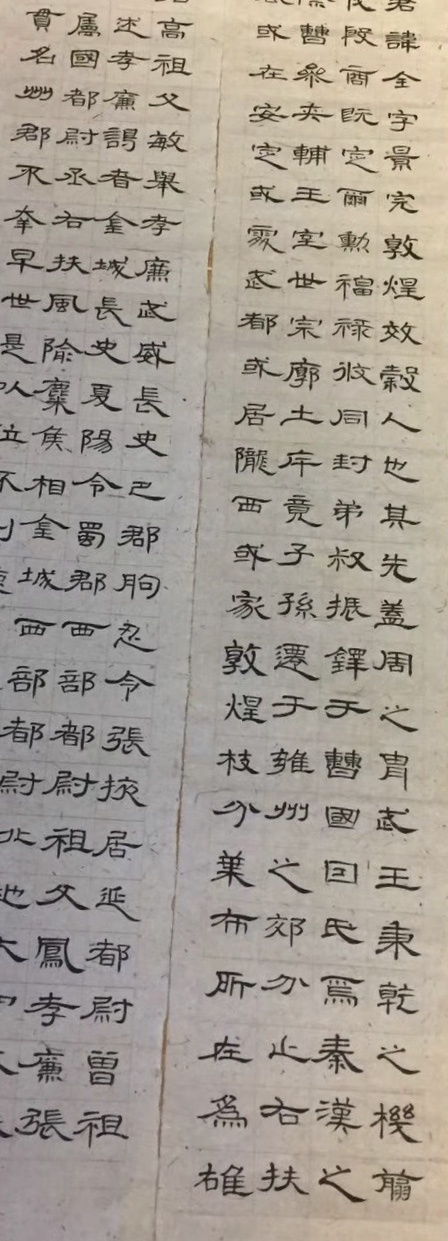 君諱全字景完敦煌效穀人也其先蓋周之胄武王秉乾之機翦
殷商既定爾勳福祿攸同封弟叔振鐸于曹國因氏焉秦漢之
曹參夾輔王室世宗廓土斥竟子孫遷于雍州之郊分止右扶
或在安定或處武都或居隴西或家敦煌枝分葉布所在為雄
高祖父敏舉孝廉武威長史巴郡朐忍令張掖居延都尉曾祖
述孝廉謁者金城長史夏陽令蜀郡西部都尉祖父鳳孝廉張
屬國都尉丞右扶風隃麋侯相金城西部都尉北地
貫名州郡不幸早世是以位不